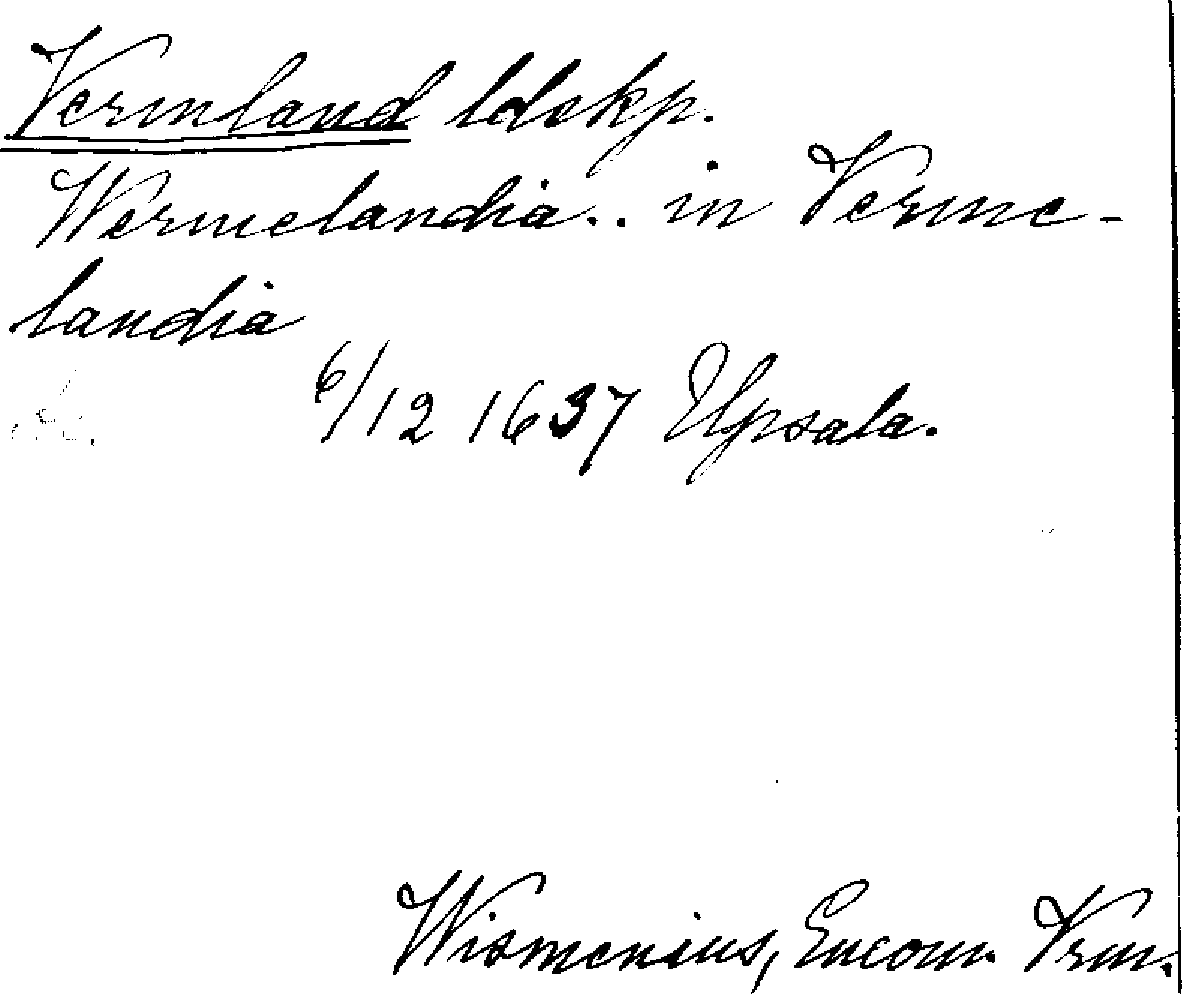 Vermland ldskp.
Wermelandia.. in Verme-
landia
6/12 1637 Upsala.
Wismenius, Encom. Vrm.